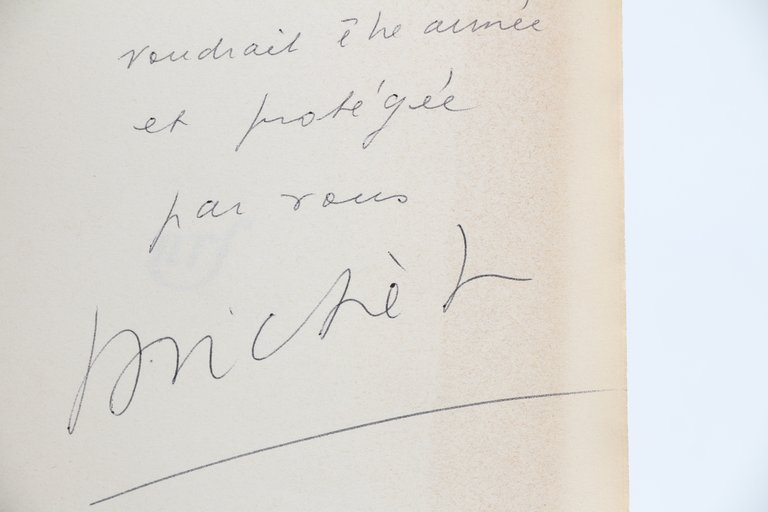 voudrait être aimée
et protégée
par vous
Michèle